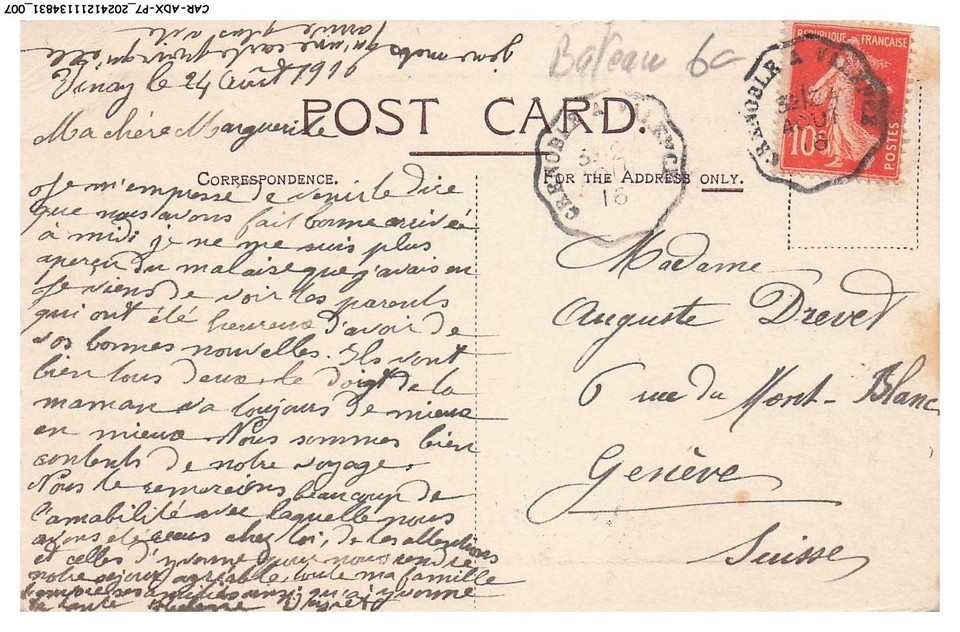 CAR-ADX-P7_20241211134831_007
pour mots qu'une carte puisqu'elle
arrive plus vite
Vinay le 24 Août 1916
Bateau 6c
POST CARD.
Ma chère Marguerite
CORRESPONDENCE.
FOR THE ADDRESS ONLY.
REPUBLIQUE FRANÇAISE
10c
POSTES
GRENOBLE A VALENCE
AOUT
16
GRENOBLE A VALENCE
16
Je m'empresse de venir te dire
que nous avons fait bonne arrivée
à midi je ne me suis plus
aperçu du malaise que j'avais eu
Je viens de voir tes parents
qui ont été heureux d'avoir de
vos bonnes nouvelles. Ils vont
bien tous deux. le doigt de la
maman va toujours de mieux
en mieux. Nous sommes bien
contents de notre voyage.
Nous te remercions beaucoup de
l'amabilité avec laquelle nous
avons été reçus chez toi, de tes attentions
et celles d'Yvonne pour nous rendre
notre séjour agréable, toute ma famille
ses amitiés ainsi qu'à Yvonne
ta tante
Madame
Auguste Drevet
6 rue du Mont-Blanc
Genève
Suisse